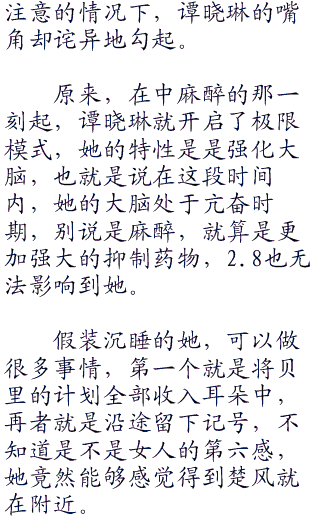 注意的情况下，谭晓琳的嘴
角却诧异地勾起。
原来，在中麻醉的那一
刻起，谭晓琳就开启了极限
模式，她的特性是是强化大
脑，也就是说在这段时间
内，她的大脑处于亢奋时
期，别说是麻醉，就算是更
加强大的抑制药物，2.8也无
法影响到她。
假装沉睡的她，可以做
很多事情，第一个就是将贝
里的计划全部收入耳朵中，
再者就是沿途留下记号，不
知道是不是女人的第六感，
她竟然能够感觉得到楚风就
在附近。